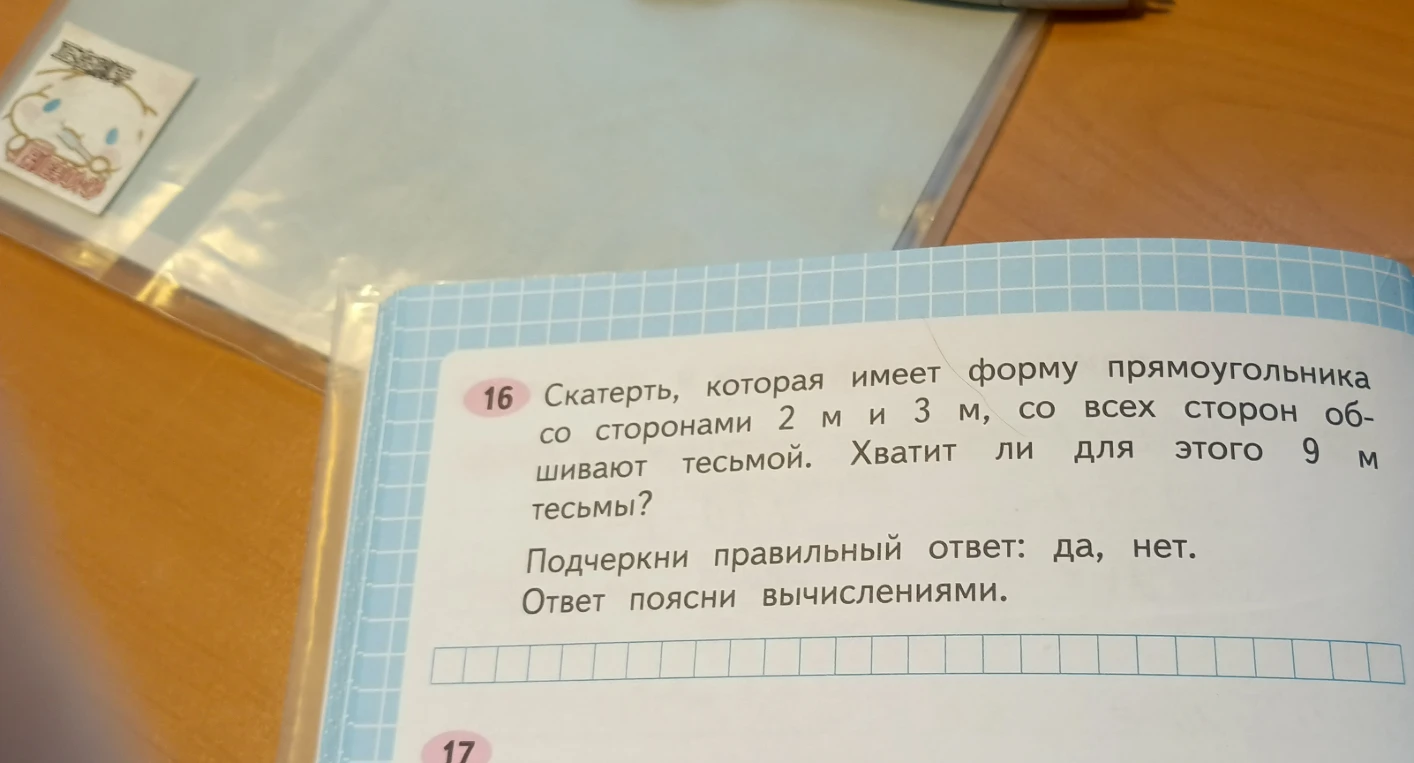 16 Скатерть, которая имеет форму прямоугольника
со сторонами 2 м и 3 м, со всех сторон об-
шивают тесьмой. Хватит ли для этого 9 м
тесьмы?
Подчеркни правильный ответ: да, нет.
Ответ поясни вычислениями.
17